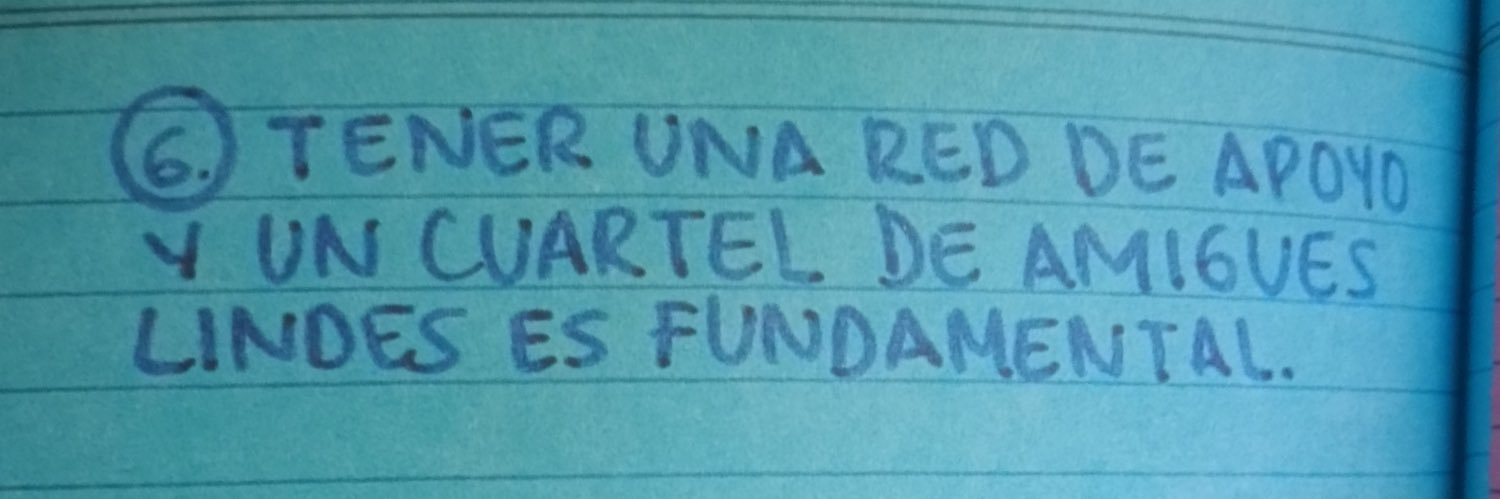 6. TENER UNA RED DE APOYO
Y UN CUARTEL DE AMIGUES
LINDES ES FUNDAMENTAL.